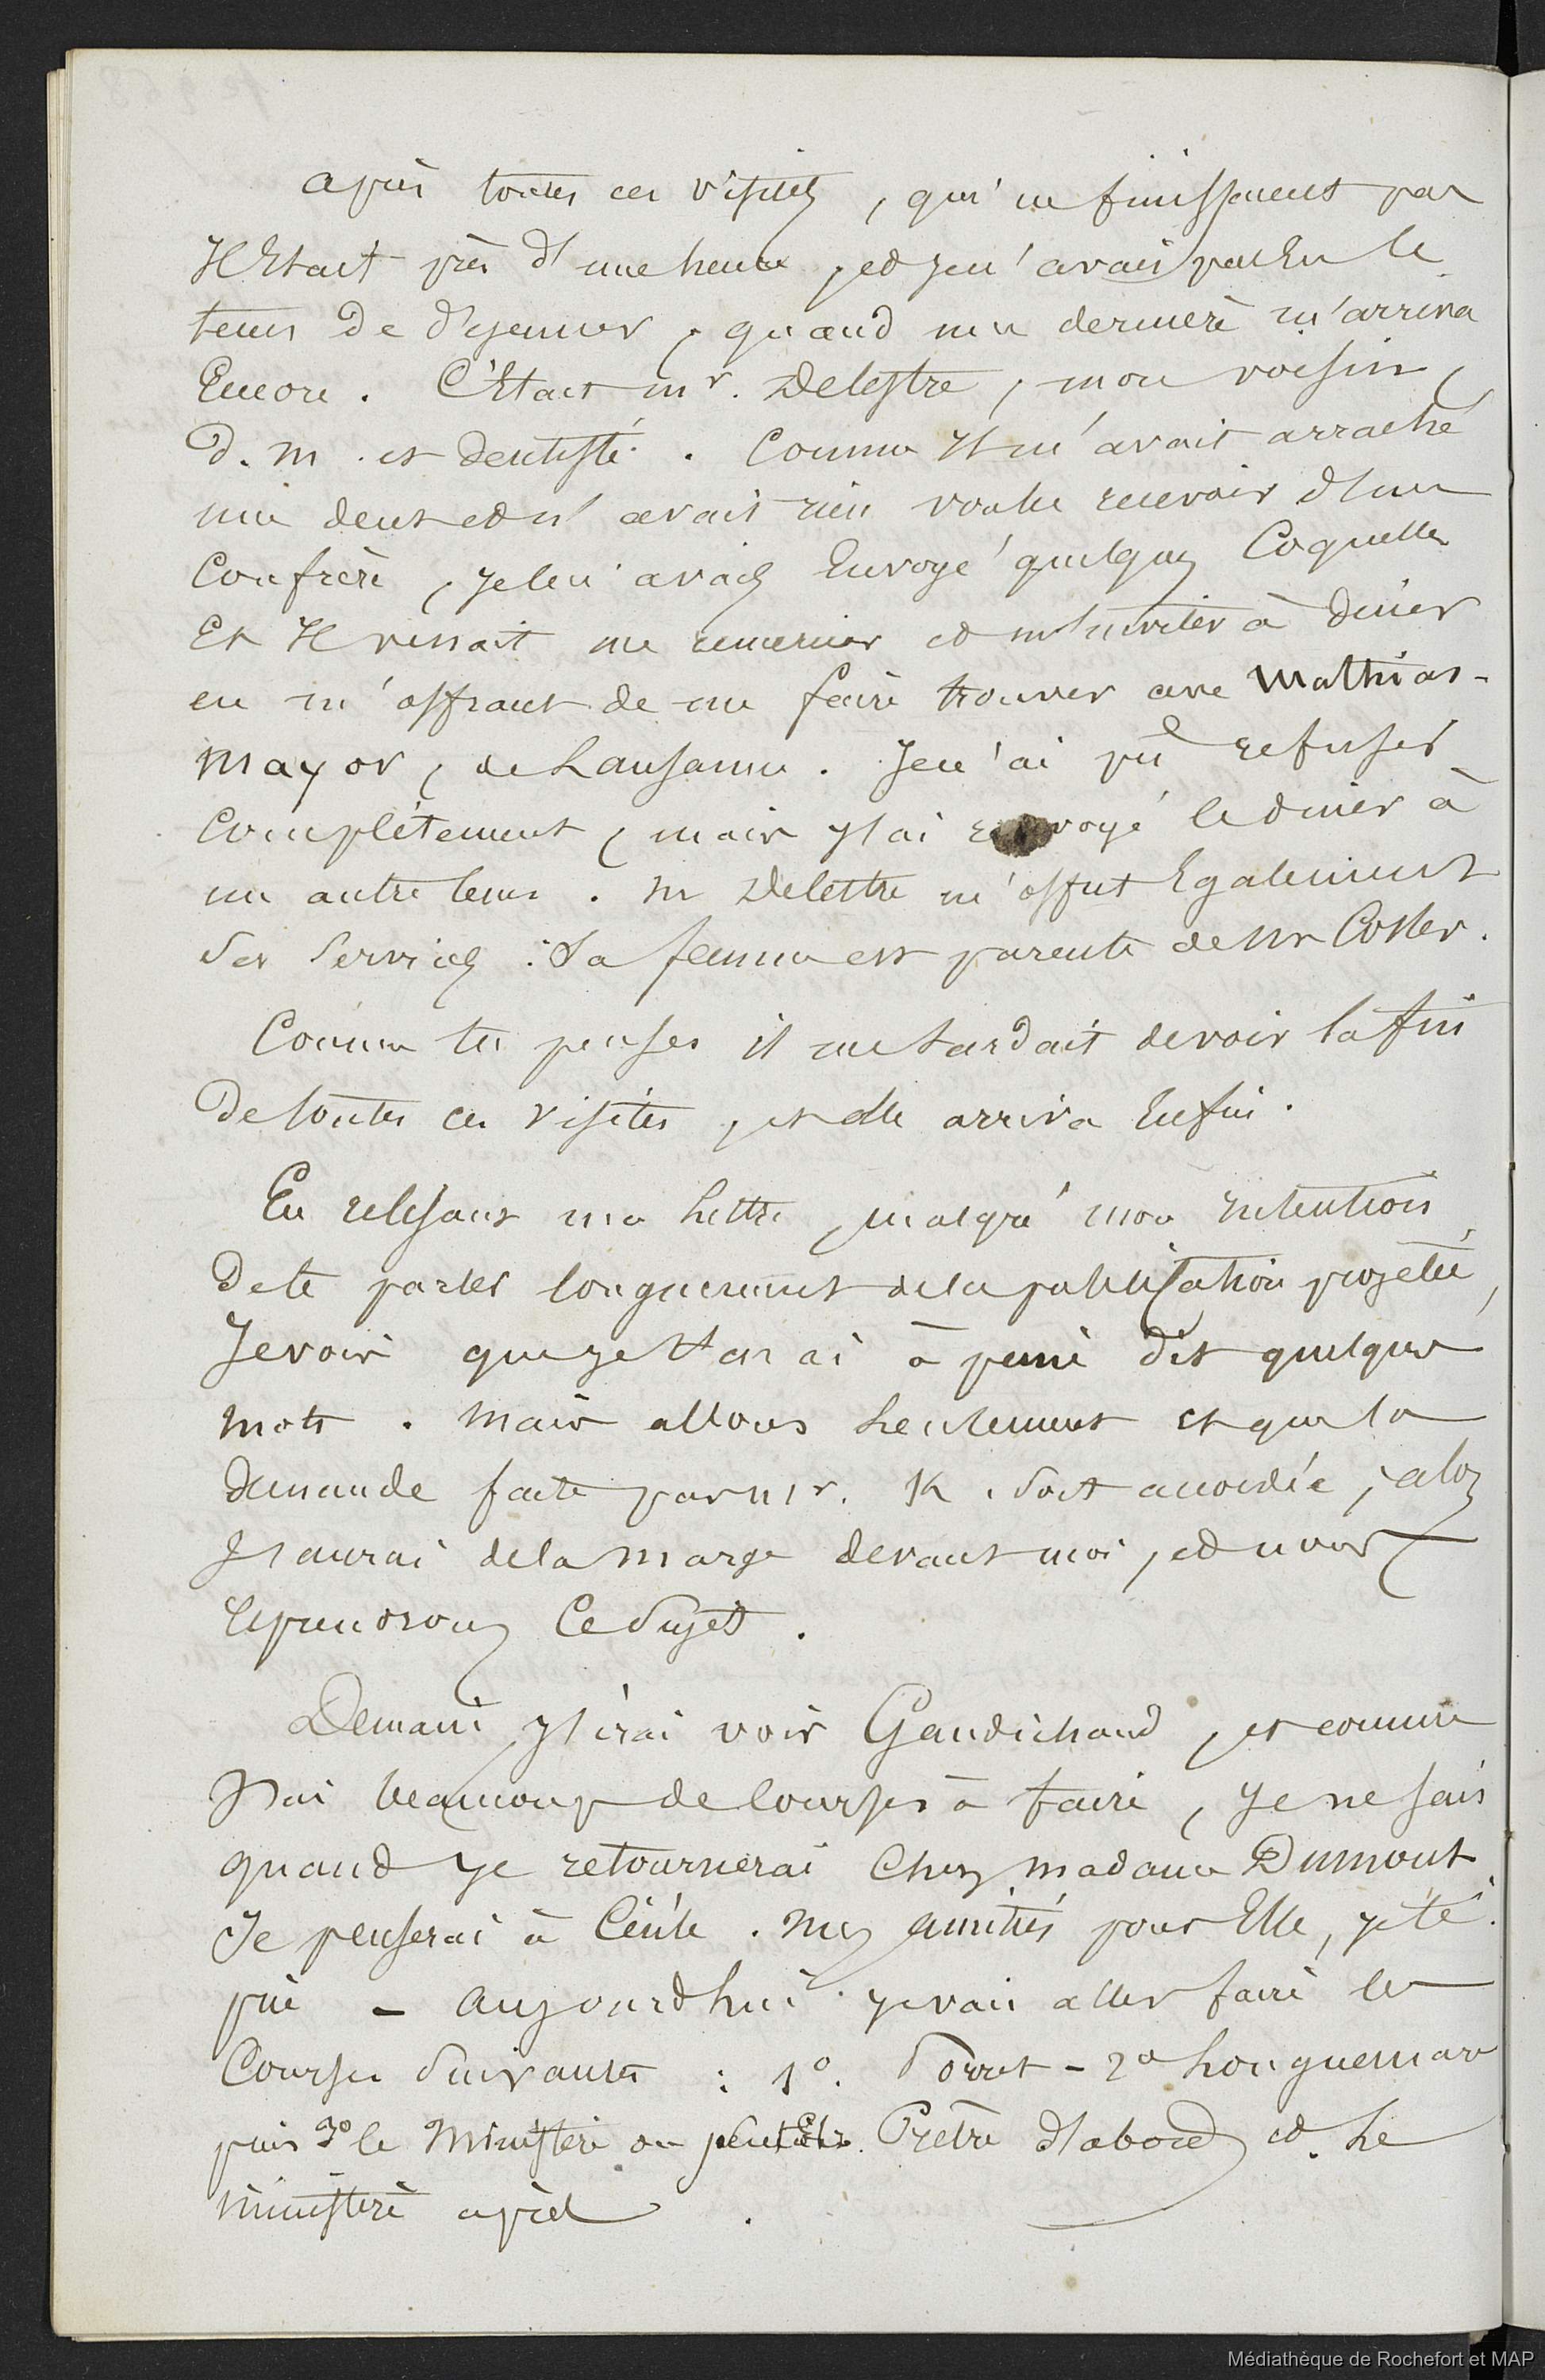 après toutes ces visites, qui ne finissaient pas
Il Etait près d'une heure, et je n'avais pas Eu le
tems de déjeuner, quand une dernière m'arriva
Encore. C'Etait mr. Delestre, mon voisin,
d. m. et dentiste. Comme Il m'avait arraché
une dent et n'avait rien voulu recevoir d'un
Confrère, je lui avais Envoyé quelques Coquilles
Et Il venait me remercier et m'inviter à diner
en m'offrant de me faire trouver avec Mathias-
Mayor, de Lausanne. Je n'ai pû refuser
Complètement, mais j'ai renvoyé le diner à
un autre tems. Mr Delestre m'offrit Egalement
ses Services : Sa femme est parente de Mr Coster.
Comme tu penses il me tardait de voir la fin
de toutes ces visites, et elle arriva Enfin.
En relisant ma lettre, malgré mon intention
de te parler longuement de la publication projetée,
Je vois que je t'en ai à peine dit quelques
mots. Mais allons seulement et que la
demande faite par Mr. K. soit accordée, alors
J'aurai de la marge devant moi, et nous
reprendrons Ce sujet.
Demain j'irai voir Gaudichaud, et comme
J'ai beaucoup de Courses à faire, je ne sais
quand je retournerai Chez madame Dumont
Je penserai à Cécile. Mes amitiés pour Elle, je te
prie - aujourd'hui je vais aller faire les
Courses Suivantes : 1°. Porret - 2° Longuemar
puis 3° le Ministère ou peut Etre Prêtre d'abord et le
ministère après.
Médiathèque de Rochefort et MAP